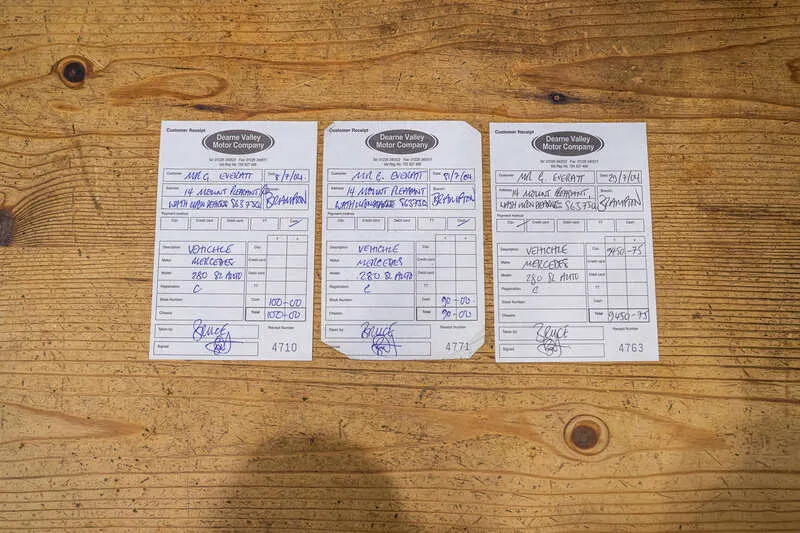 Customer Receipt
Dearne Valley
Motor Company
Customer: MR G EVERATT Date: 8/7/04
Address: 14 MOUNT PLEASANT, Branch: BRAMPTON
WATH UPON DEARNE S63 7SQ
Payment method
Chq Credit card Debit card TT Cash
£ p
Description: VEHICHLE Chq
Make: MERCEDES Credit card
Model: 280 SL AUTO Debit card
Registration: C TT
Stock Number: Cash 100-00
Chassis: Total 100-00
Taken by: BRUCE Receipt Number
Signed 4710
Customer Receipt
Dearne Valley
Motor Company
Customer: MR G. EVERATT Date: 8/7/04
Address: 14 MOUNT PLEASANT Branch: BRAMPTON
WATH UPON DEARNE S63 7SQ
Payment method
Chq Credit card Debit card TT Cash
£ p
Description: VEHICHLE Chq
Make: MERCEDES Credit card
Model: 280 SL AUTO Debit card
Registration: C TT
Stock Number: Cash 90-00
Chassis: Total 90-00
Taken by: BRUCE Receipt Number
Signed 4771
Customer Receipt
Dearne Valley
Motor Company
Customer: MR G. EVERATT Date: 20/7/04
Address: 14 MOUNT PLEASANT, Branch: BRAMPTON
WATH UPON DEARNE S63 7SQ
Payment method
Chq Credit card Debit card TT Cash
£ p
Description: VEHICHLE Chq 9450-75
Make: MERCEDES Credit card
Model: 280 SL AUTO Debit card
Registration: C TT
Stock Number: Cash
Chassis: Total 9450-75
Taken by: BRUCE Receipt Number
Signed 4763